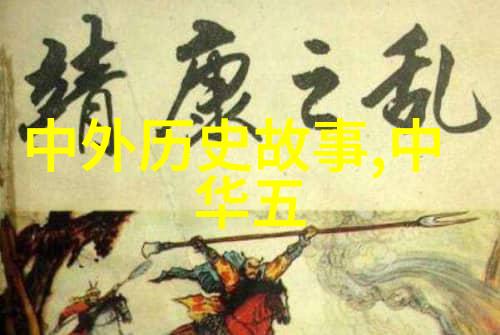 靖康之乱
中外历史故事,中
华五